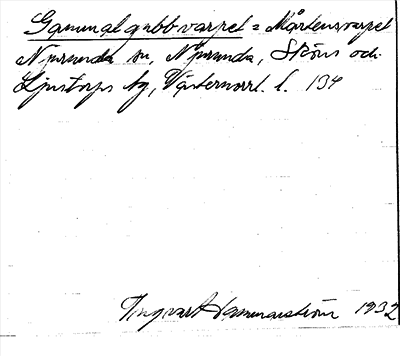 Gammalgubbvarpet = Mårtensvarpet
Njurunda sn, Njurunda, Sköns och
Ljustorps tg, Västernorrl. l. 134
Ingvar Hammarström 1932